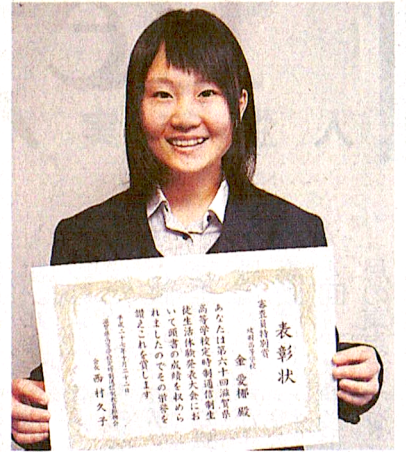 表彰状
審査員特別賞
金 愛娜 殿
あなたは第六十回滋賀県
高等学校定時制通信制生
徒生活体験発表大会にお
いて頭書の成績を収めら
れましたのでその栄誉を
讃えこれを賞します
会長 西村久子